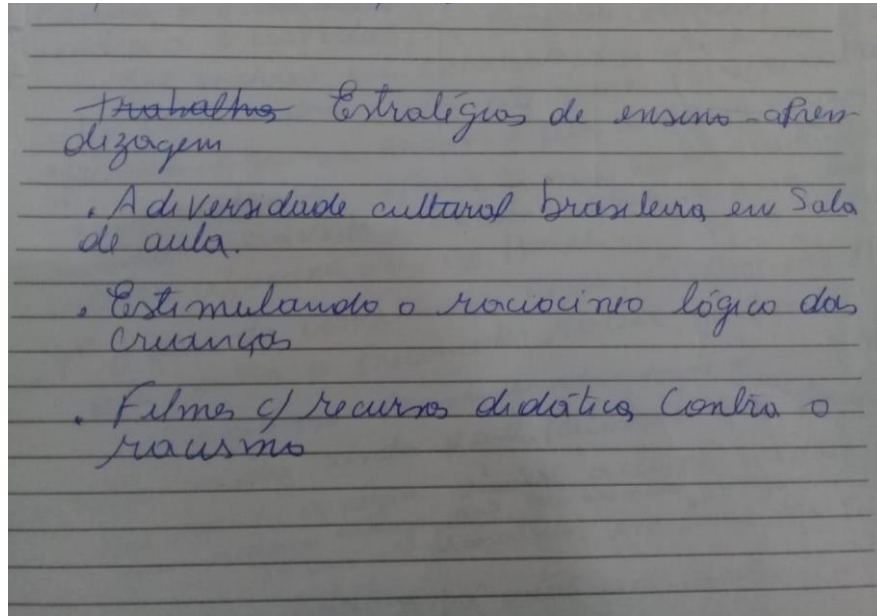 Estratégias de ensino-apren-
dizagem
. A diversidade cultural brasileira em Sala
de aula.
. Estimulando o raciocínio lógico das
crianças
. Filmes c/ recurso didático Contra o
racismo